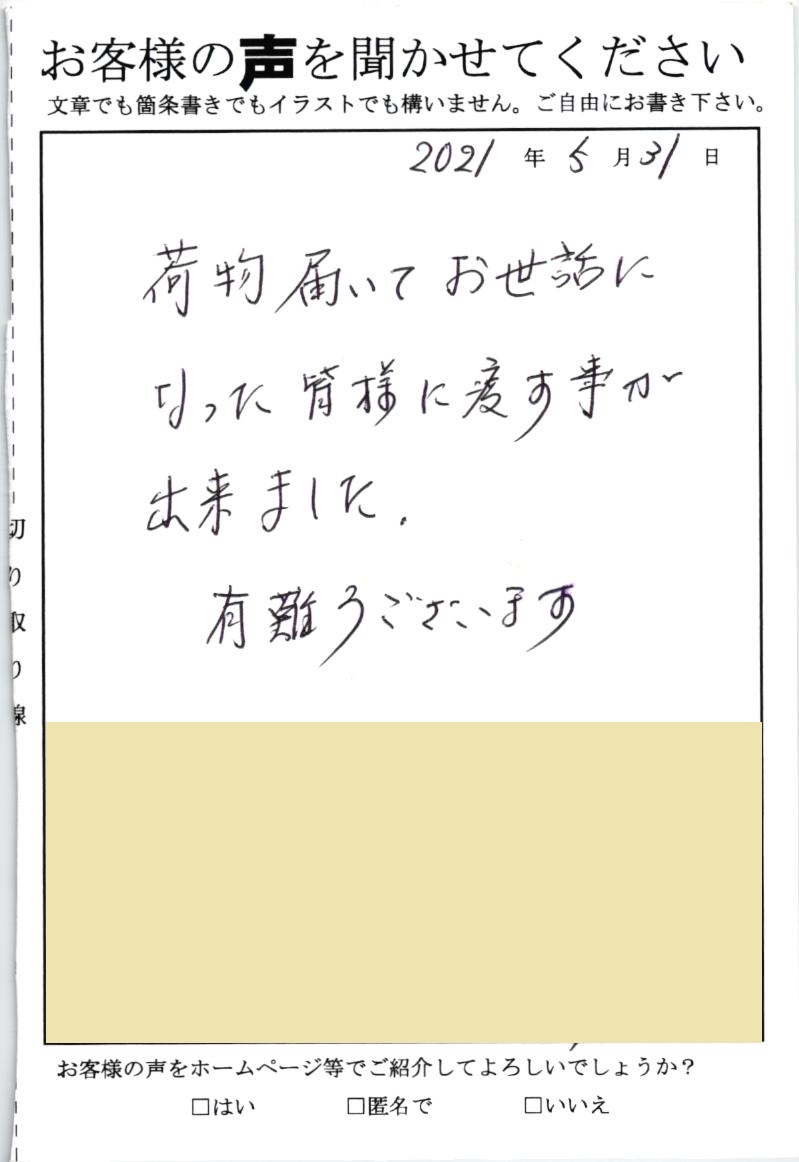 お客様の声を聞かせてください
文章でも箇条書きでもイラストでも構いません。ご自由にお書き下さい。
2021年5月31日
荷物届いてお世話に
なった皆様に渡す事が
出来ました.
有難うございます
切り取り線
お客様の声をホームページ等でご紹介してよろしいでしょうか？
□はい □匿名で □いいえ